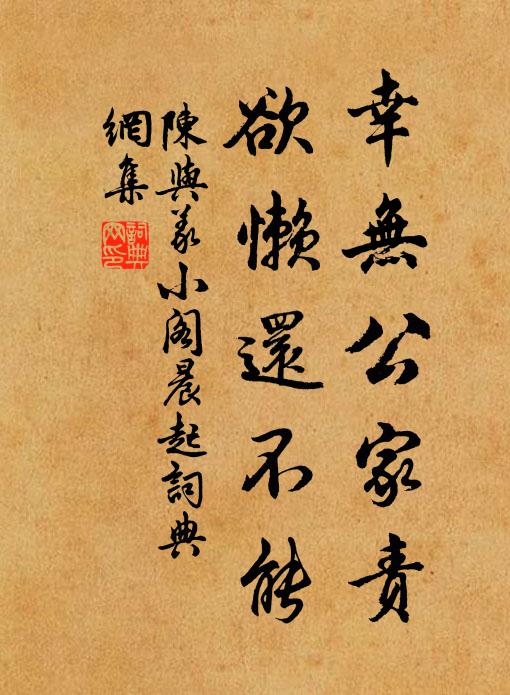 幸無公家責
欲懶還不能
陳與義小閣晨起詞典
網集
詞典
网印